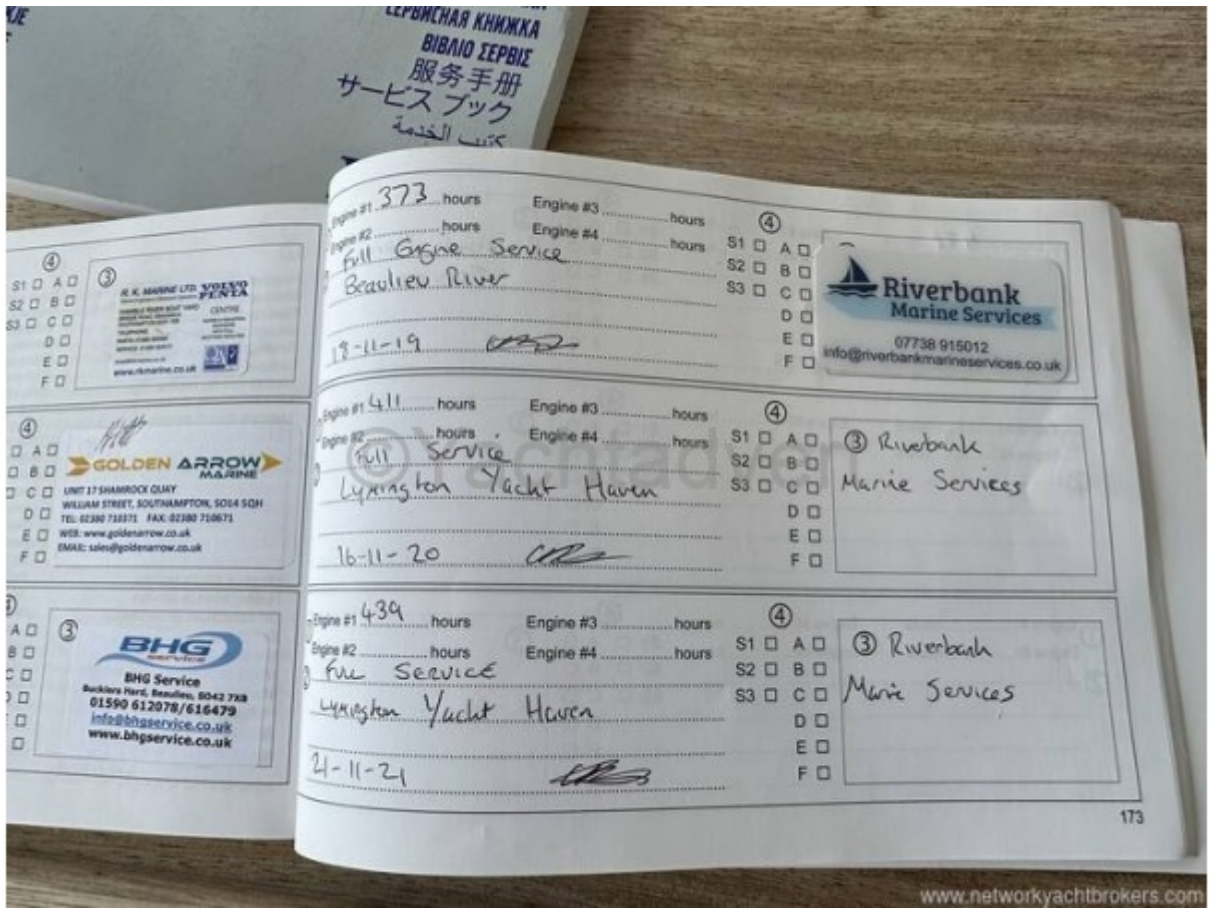 СЕРВИСНАЯ КНИЖКА
ΒΙΒΛΙΟ ΣΕΡΒΙΣ
服务手册
サービス ブック
كتيب الخدمة
④
S1 A
S2 B
S3 C
D
E
F
③
R. K. MARINE LTD. VOLVO PENTA
CENTRE
www.rkmarine.co.uk
④
A
B
C
D
E
F
GOLDEN ARROW
MARINE
UNIT 17 SHAMROCK QUAY
WILLIAM STREET, SOUTHAMPTON, SO14 5QH
TEL: 02380 710371 FAX: 02380 710671
WEB: www.goldenarrow.co.uk
EMAIL: sales@goldenarrow.co.uk
A
B
③
BHG
service
BHG Service
Bucklers Hard, Beaulieu, SO42 7XB
01590 612078/616479
info@bhgservice.co.uk
www.bhgservice.co.uk
Engine #1 373 hours Engine #3 hours
Engine #2 hours Engine #4 hours
Full Engine Service
Beaulieu River
18-11-19
④
S1 A
S2 B
S3 C
D
E
F
Riverbank
Marine Services
07738 915012
info@riverbankmarineservices.co.uk
Engine #1 411 hours Engine #3 hours
Engine #2 hours Engine #4 hours
Full Service
Lymington Yacht Haven
16-11-20
④
S1 A
S2 B
S3 C
D
E
F
③ Riverbank
Marine Services
©Yachtadvert
Engine #1 439 hours Engine #3 hours
Engine #2 hours Engine #4 hours
Full Service
Lymington Yacht Haven
21-11-21
④
S1 A
S2 B
S3 C
D
E
F
③ Riverbank
Marine Services
173
www.networkyachtbrokers.com